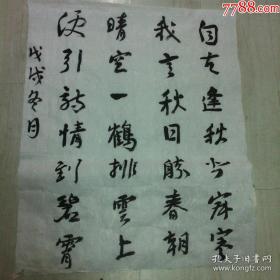 自古逢秋悲寂寥
我言秋日胜春朝
晴空一鹤排雲上
便引诗情到碧霄
戊戌冬月
7788.com
孔夫子旧书网